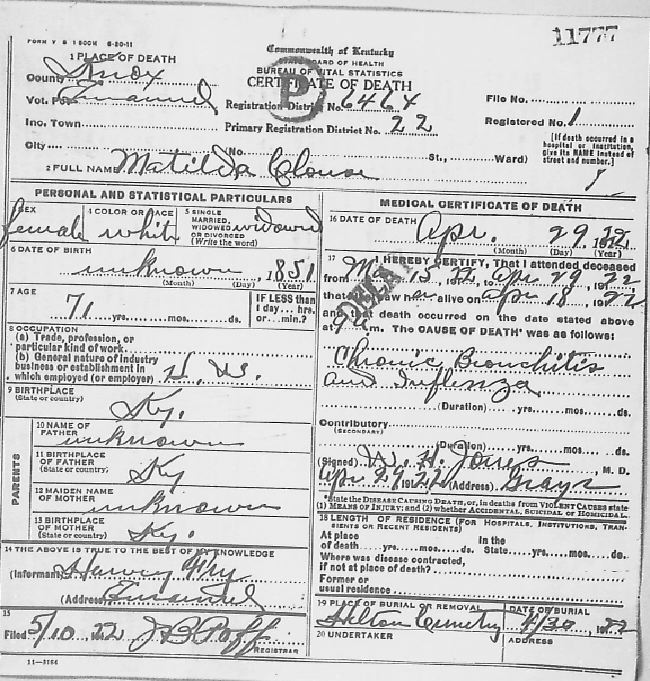 11777
FORM V S 1 500M 6-20-11
Commonwealth of Kentucky
STATE BOARD OF HEALTH
BUREAU OF VITAL STATISTICS
CERTIFICATE OF DEATH
1 PLACE OF DEATH
County Knox
Vot. Pct. Emanuel
Registration District No. 6464
File No.
Inc. Town
Primary Registration District No. 22
Registered No. 1
City (No. St., Ward)
[If death occurred in a hospital or institution, give its NAME instead of street and number.]
2 FULL NAME Matilda Clouse
PERSONAL AND STATISTICAL PARTICULARS
3 SEX female
4 COLOR OR RACE white
5 SINGLE MARRIED, WIDOWED OR DIVORCED (Write the word) widowed
6 DATE OF BIRTH
unknown, 1851
(Month) (Day) (Year)
7 AGE
71 yrs. mos. ds.
IF LESS than 1 day... hrs. or... min.?
8 OCCUPATION
(a) Trade, profession, or particular kind of work
(b) General nature of industry business or establishment in which employed (or employer) H. W.
9 BIRTHPLACE
(State or country) Ky.
PARENTS
10 NAME OF FATHER unknown
11 BIRTHPLACE OF FATHER (State or country) Ky
12 MAIDEN NAME OF MOTHER unknown
13 BIRTHPLACE OF MOTHER (State or country) Ky.
14 THE ABOVE IS TRUE TO THE BEST OF MY KNOWLEDGE
(Informant) Harvey Fry
(Address) Emanuel
15
Filed 5/10, 1922
REGISTRAR
11-3184
MEDICAL CERTIFICATE OF DEATH
16 DATE OF DEATH Apr. 29 1922
(Month) (Day) (Year)
17 I HEREBY CERTIFY, That I attended deceased
from 15, 22, to Apr 29, 1922
that I last saw alive on Apr 18, 1922
and that death occurred on the date stated above
at m. The CAUSE OF DEATH* was as follows:
Chronic Bronchitis
and Inflenza
(Duration) yrs. mos. ds.
Contributory
(SECONDARY)
(Duration) yrs. mos. ds.
(Signed) W. H. Jones, M. D.
Apr 29 1922 (Address) Grays
*State the DISEASE CAUSING DEATH, or, in deaths from VIOLENT CAUSES state (1) MEANS OF INJURY; and (2) whether ACCIDENTAL, SUICIDAL or HOMICIDAL.
18 LENGTH OF RESIDENCE (FOR HOSPITALS, INSTITUTIONS, TRANSIENTS OR RECENT RESIDENTS)
At place of death yrs. mos. ds. In the State yrs. mos. ds.
Where was disease contracted, if not at place of death?
Former or usual residence
19 PLACE OF BURIAL OR REMOVAL
Cemetry
DATE OF BURIAL
4/30, 1922
20 UNDERTAKER
ADDRESS